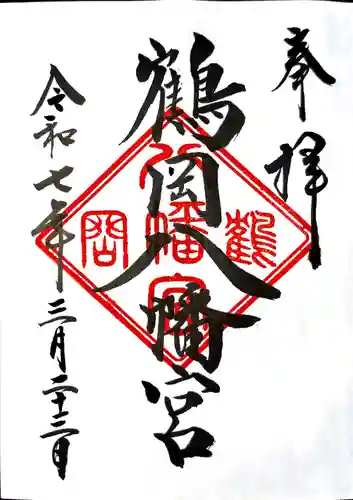 奉拝
鶴岡八幡宮
鶴岡八幡宮
令和七年三月二十三日